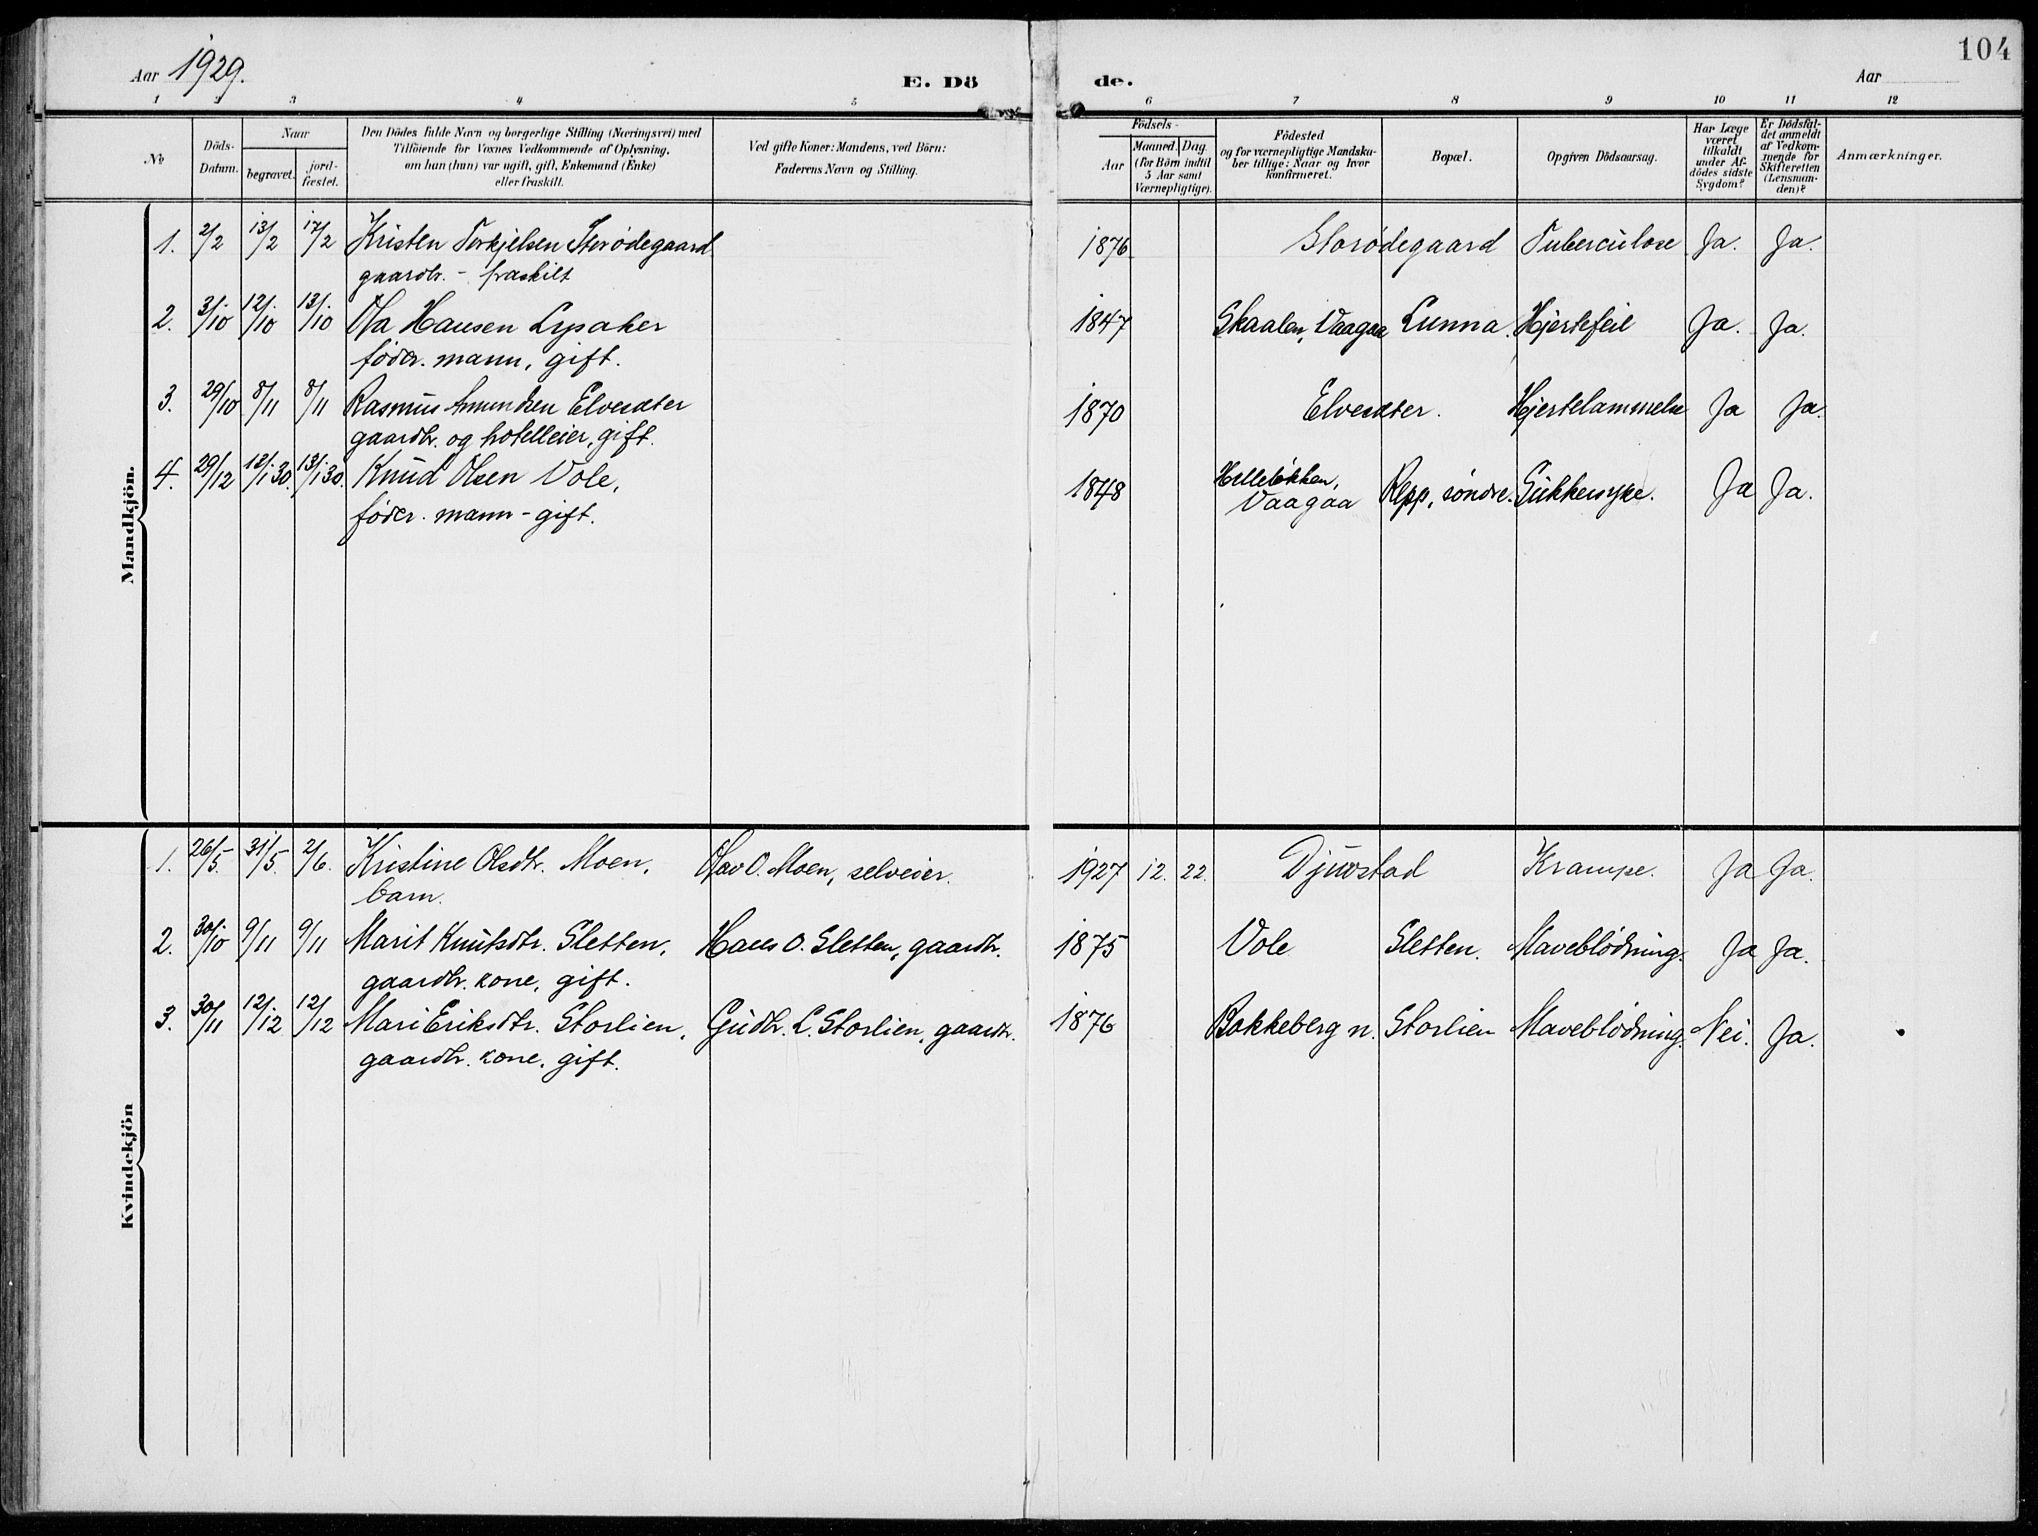 104
Aar 1929.
E. Dö
de.
Aar
1 2 3 4 5 6 7 8 9 10 11 12
No
Döds-
Datum.
Naar
begravet.
jord-
fæstet.
Den Dödes fulde Navn og borgerlige Stilling (Næringsvei) med
Tilföiende for Voxnes Vedkommende af Oplysning,
om han (hun) var ugift, gift, Enkemand (Enke)
eller fraskilt.
Ved gifte Koner: Mandens, ved Börn:
Faderens Navn og Stilling.
Födsels-
Aar
Maaned.
Dag.
(for Börn indtil
5 Aar samt
Værnepligtige).
Födested
og for værnepligtige Mandska-
ber tillige: Naar og hvor
konfirmeret.
Bopæl.
Opgiven Dödsaarsag.
Har Læge
været
tilkaldt
under Af-
dödes sidste
Sygdom?
Er Dödsfal-
det anmeldt
af Vedkom-
mende for
Skifteretten
(Lensman-
den)?
Anmærkninger.
Mandkjön.
1. 2/2 13/2 17/2 Kristen Torkjelsen Storødegaard 1876 Storødegaard Tuberculose Ja. Ja.
gaardbr. - fraskilt
2. 3/10 12/10 13/10 Ola Hansen Lysaker 1847 Skaalen, Vaagaa Lunna. Hjertefeil Ja. Ja.
føder. mann, gift.
3. 29/10 8/11 8/11 Rasmus Amundsen Elvesæter 1870 Elvesæter. Hjertelammelse Ja Ja.
gaardbr. og hotelleier, gift.
4. 29/12 12/1 30. 13/1 30. Knud Olsen Vole, 1848 Helleløkken, Vaagaa Repp, søndre. Sukkersyke. Ja Ja.
føder. mann - gift.
Kvindekjön
1. 26/5. 31/5. 2/6. Kristine Olsdtr. Moen, Olav O. Moen, selveier. 1927 12. 22. Djuvstad Krampe. Ja Ja.
barn.
2. 30/10 9/11 9/11 Marit Knutsdtr. Sletten, Hans O. Sletten, gaardbr. 1875 Vole Sletten. Maveblödning. Ja Ja.
gaardbr. kone, gift.
3. 30/11 12/12 12/12 Mari Eriksdtr. Storlien, Gudbr. L. Storlien, gaardbr. 1876 Bakkeberg n. Storlien Maveblödning. Nei. Ja.
gaardbr. kone, gift.